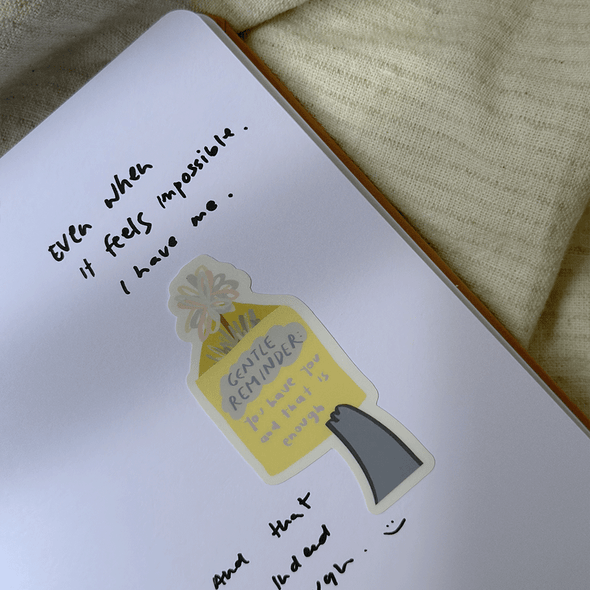 Even when
it feels impossible.
I have me.
GENTLE
REMINDER:
you have you
and that is
enough
And that
indeed
ugh. :)